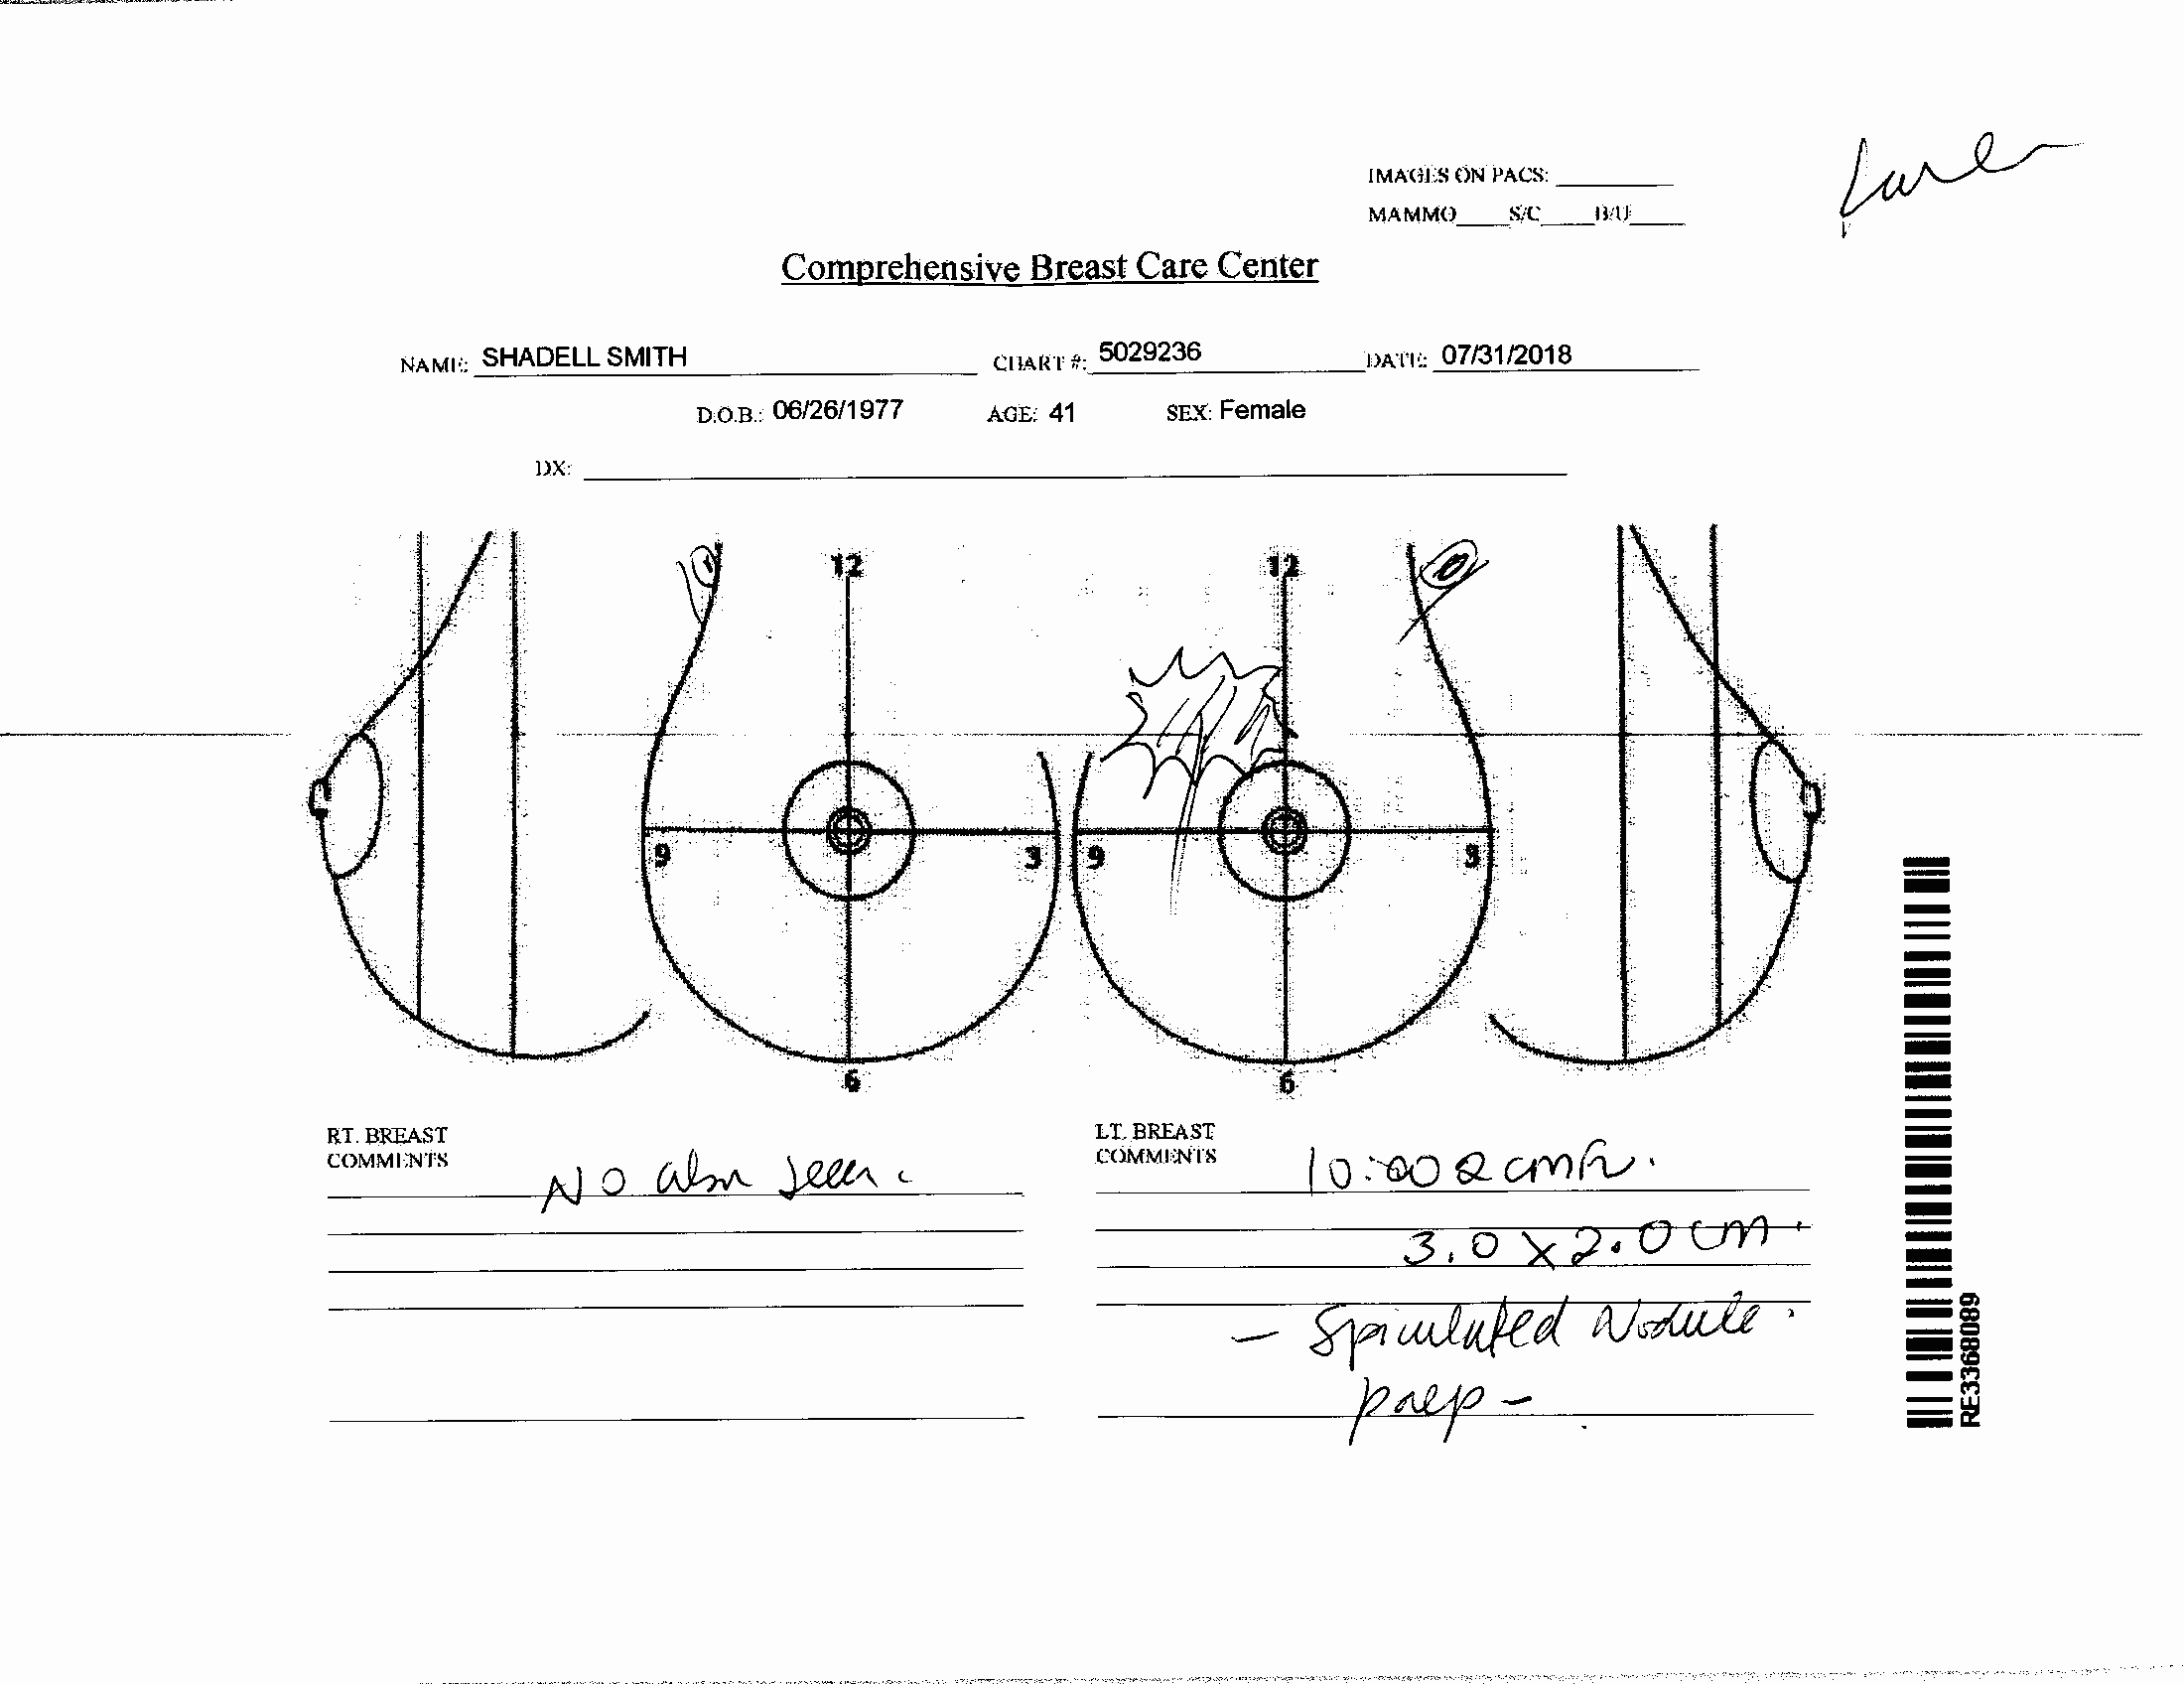 IMAGES ON PACS:
MAMMO____S/C____B/U____
Comprehensive Breast Care Center
NAME: SHADELL SMITH CHART #: 5029236 DATE: 07/31/2018
D.O.B.: 06/26/1977 AGE: 41 SEX: Female
DX:
12 12
9 3 9 3
6 6
RT. BREAST
COMMENTS
NO abn seen.
LT. BREAST
COMMENTS
10:00 2 cmfn.
3.0 x 2.0 cm.
- Spiculated Nodule.
RE3368089